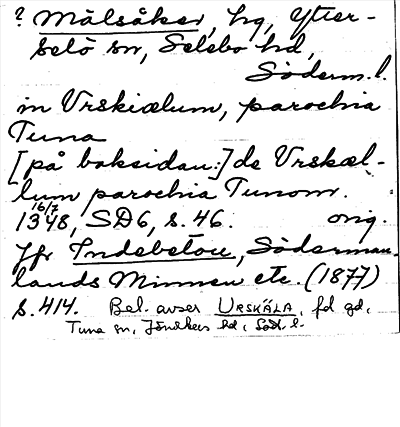 ? Målsåker, hg, Ytter-
selö sn, Selebo hd,
Söderm. l.
in Vrskiælum, parochia
Tuna
[på baksidan:] de Vrskæl-
lum parochia Tunom.
16/7
1348, SD6, s. 46. orig.
Jfr Indebetou, Söderman-
lands Minnen etc. (1877)
s. 414. Bel. avser URSKÄLA, fd gd,
Tuna sn, Jönåkers hd, Södl. l.